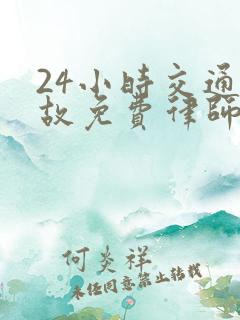 24小时交通
故免費律師
何炎祥
未经同意禁止转载